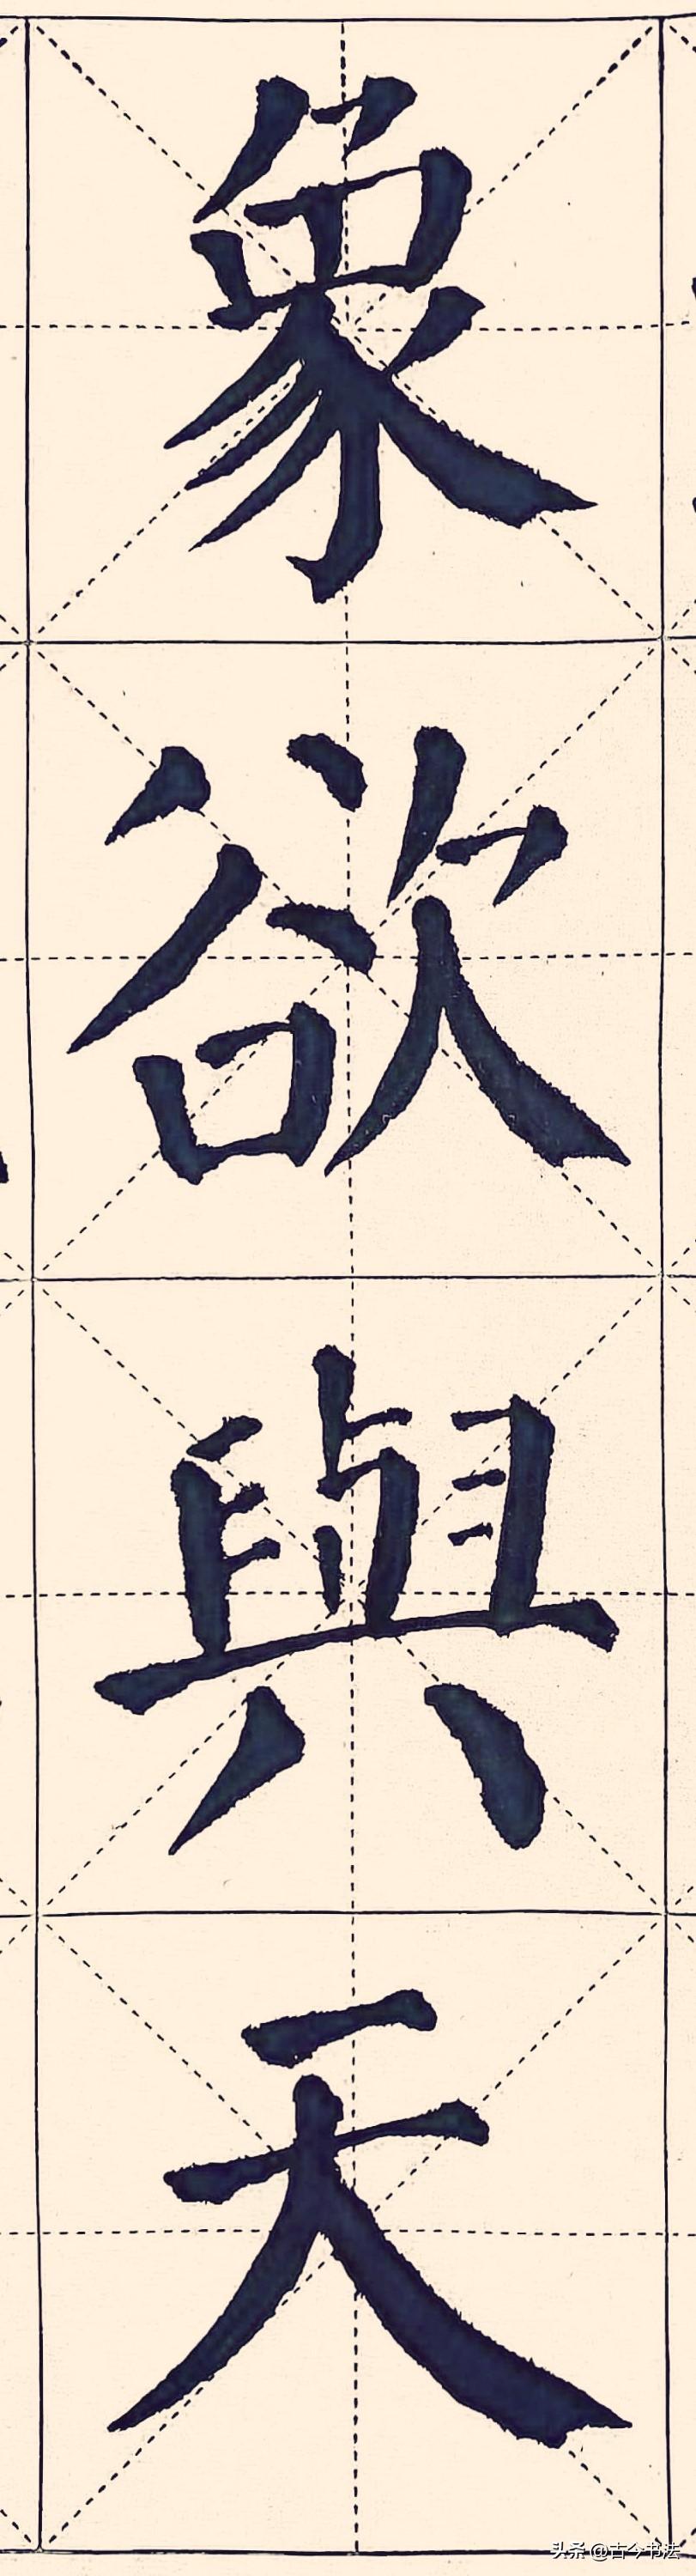 象欲與天
头条 @古今书法